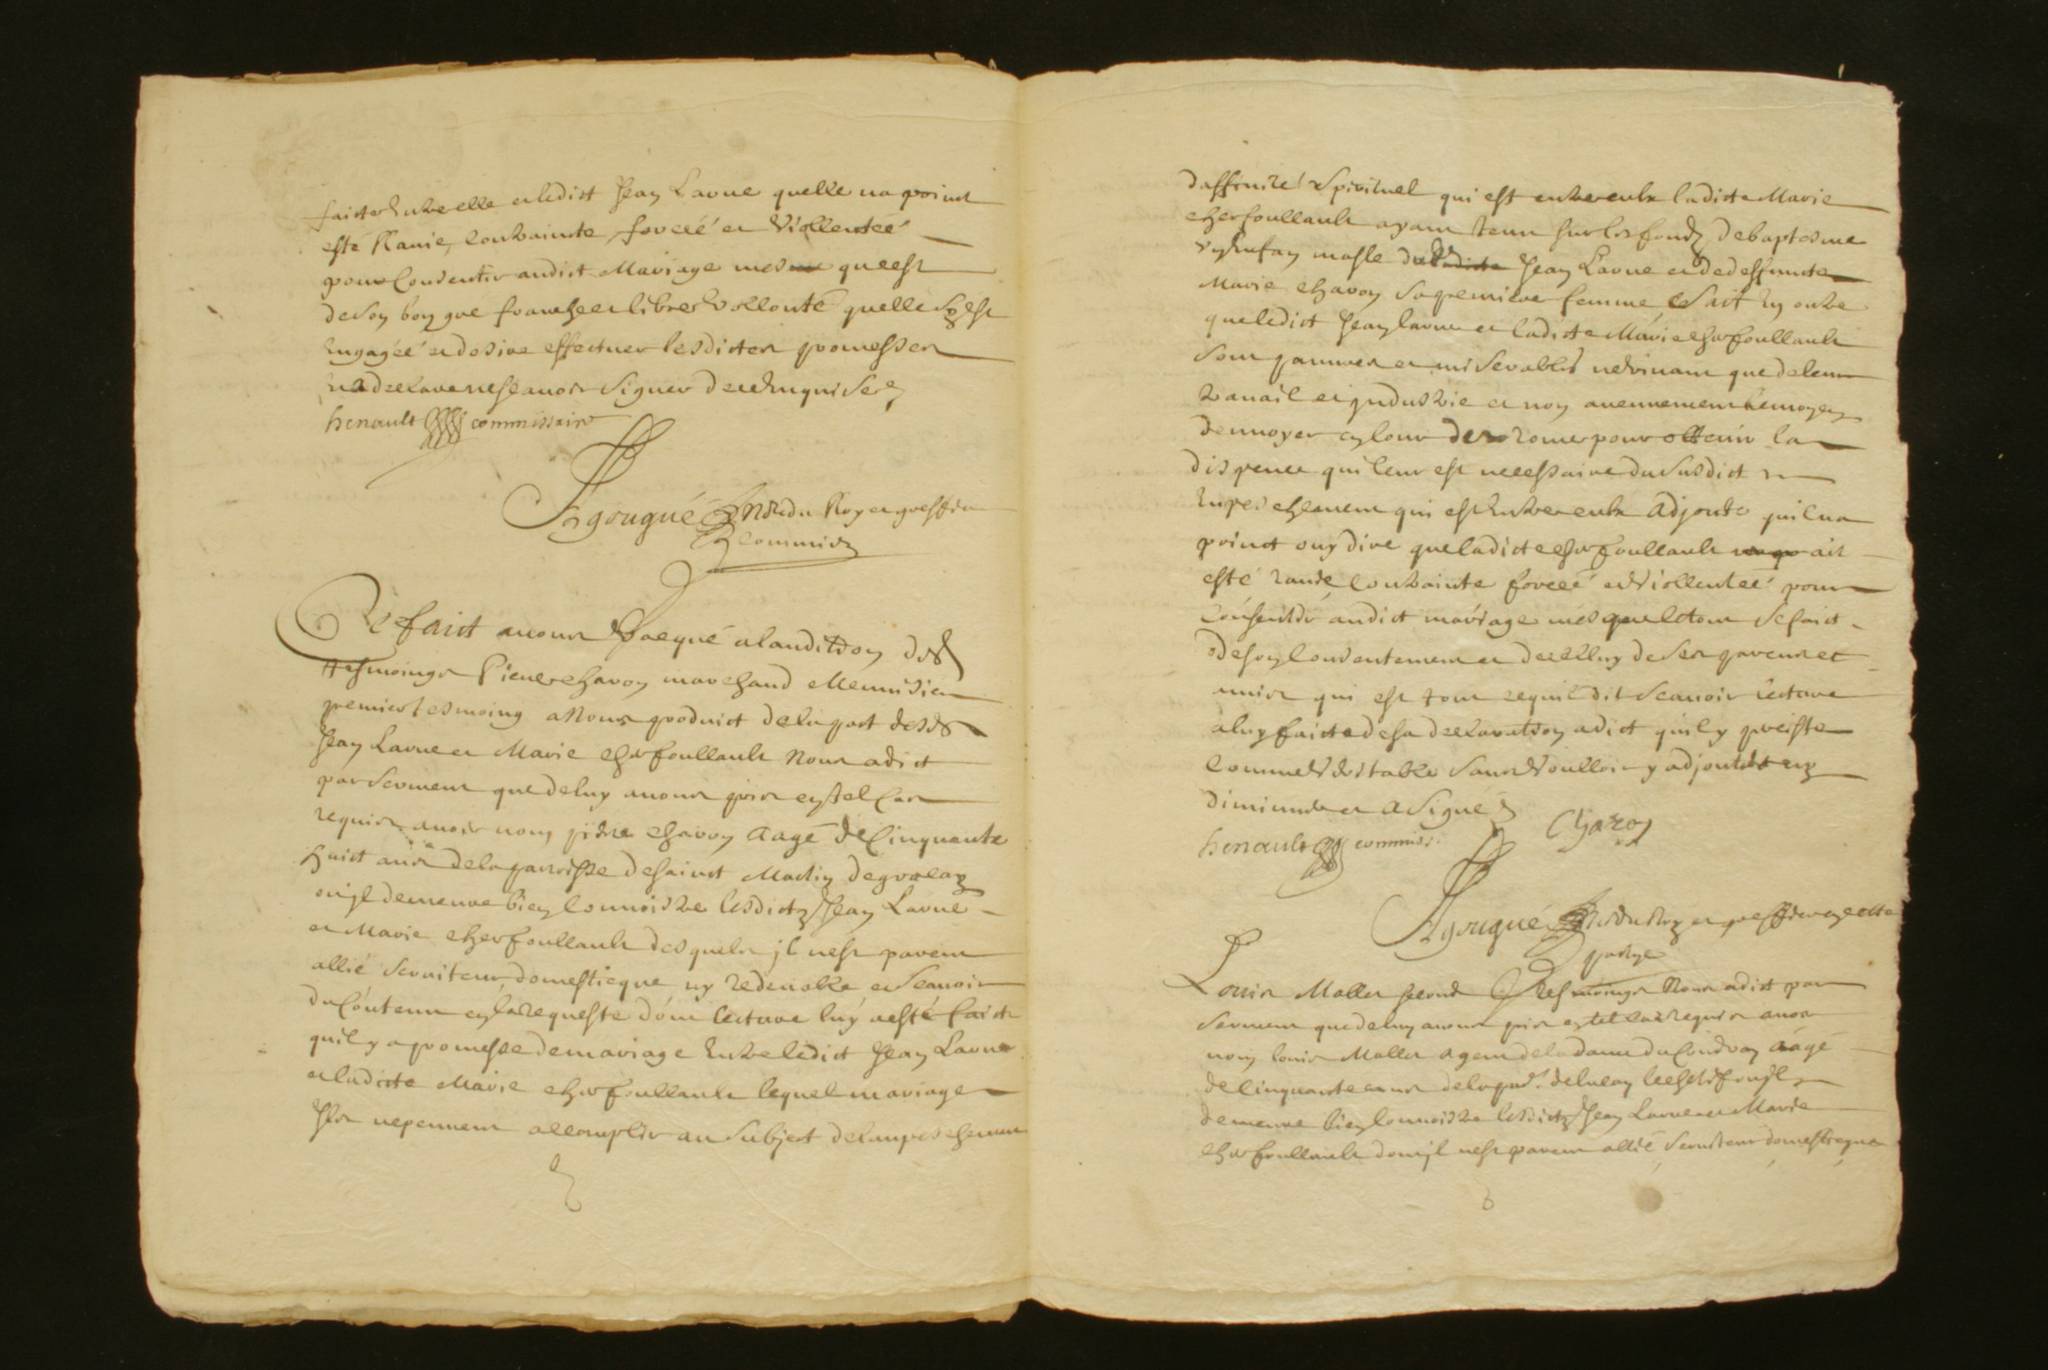 faictes entre elle et ledict Jean Lavue quelle na point
esté Ravie, contrainte, forcéé et Viollentéé
pour Consentir audict Mariage mes que cest
de son bon gre franche et libre vollonté quelle sest
engagéé et desire effectuer lesdictes promesses
et a declaré ne scavoir signer de ce enquise
henault commissaire
Agougué Nore du Roy et greffier
commis
Ce faict avons vacqué a laudition des
tesmoings Pierre Charon marchand Menuisier
premier tesmoing a Nous produict de la part desds
Jean Lavue et Marie Cherfoullault Nous a dict
par serment que de luy avons pris en tel cas
requis avoir nom pierre Charon aagé de Cinquante
huict ans de la parroisse de sainct Martin
ou il demeure bien Connoistre lesdictz Jean Lavue
et Marie Cherfoullault desquels il nest parent
allié serviteur domesticque ny redevable et scavoir
du Contenu en la requeste dont lecture luy a esté faicte
quil y a promesse de mariage Entre ledict Jean Lavue
et ladicte Marie Cherfoullault lequel mariage
Ils ne peuvent accomplir au subject de lempeschement
daffinité spirituel qui est entre eulx ladicte Marie
Cherfoullault ayant tenu sur les fondz de baptesme
un enfan masle dud Jean Lavue et de deffuncte
Marie Charon sa premiere femme en outre
que ledict Jean Lavue et ladicte Marie Cherfoullault
sont pauvres et miserables ne vivant que de leur
travail et industrie et non aucunement le moyen
denvoyer en cour de rome pour obtenir la
dispence qui leur est necessaire du susdict
empeschement qui est entre eulx adjoute quil na
point ouy dire que ladicte Cherfoullault ait
esté ravie, contrainte forcéé et viollentéé pour
Consentir audict mariage mes que le tout se faict
de son Consentement et de celluy de ses parens et
amis qui est tout ce quil dit scavoir lecture
a luy faicte de sa declaration a dict quil y preiste
Comme veritable sans vouloir y adjouter ny
diminuer et a signé
henault commiss. Charon
Agougué Nore du Roy et greffier en cette
partye
Louis Maller second tesmoings Nous a dict par
serment que de luy avons pris en tel cas requis avoir
nom louis Maller agent de la dame du Coudray aagé
de Cinquante ans
demeure bien Connoistre lesdictz Jean Lavue et Marie
Cherfoullault dont il nest parent allié serviteur domesticque